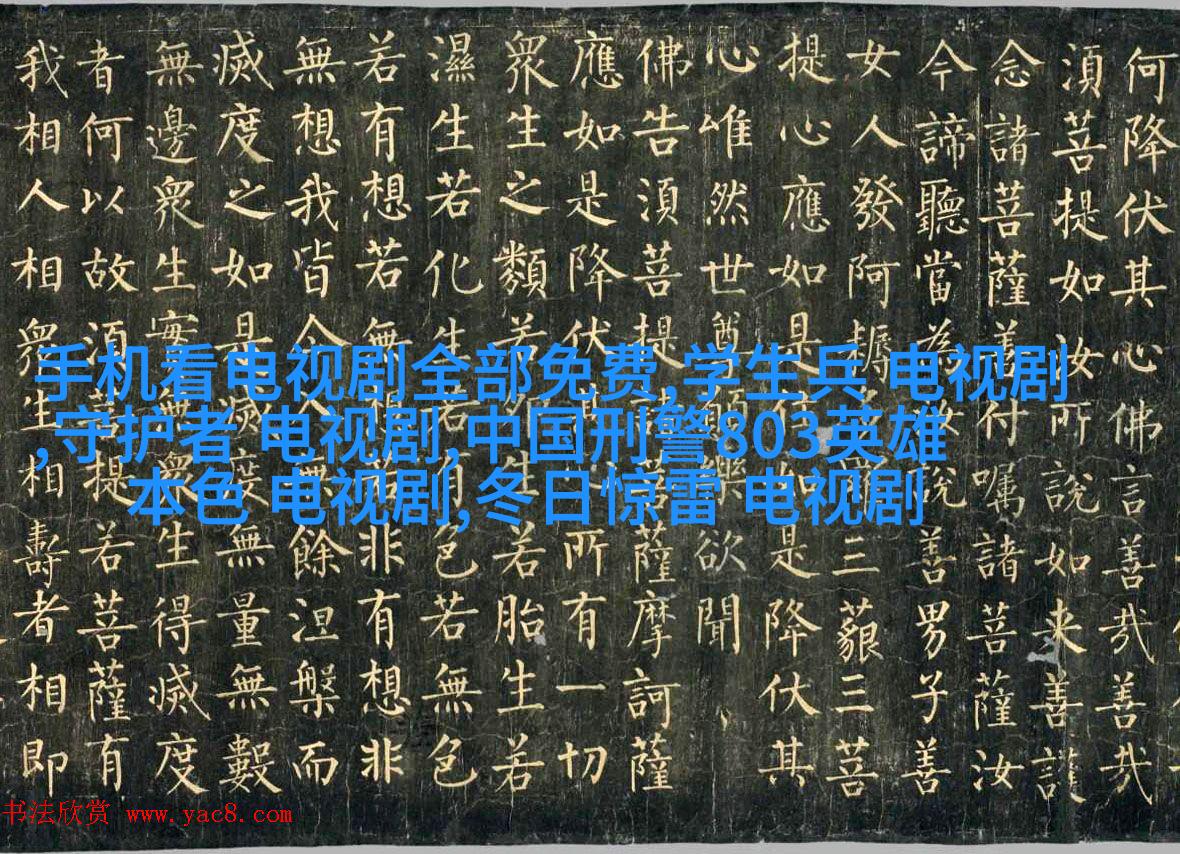 何降伏其心佛言善哉善哉
須菩提如汝所說如来善護
念諸菩薩善付嘱諸菩薩汝
今諦聽當為汝說善男子善
女人發阿耨三藐三菩
提心應如是住如是降伏其
心唯然世尊願樂欲聞
佛告須菩提諸菩薩摩訶薩
應如是降伏其心所有一切
眾生之類若卵生若胎生若
濕生若化生若有色若無色
若有想若無想若非有想非
無想我皆令入無餘涅槃而
滅度之如是滅度無量無數
無邊眾生實無眾生得滅度
者何以故須菩提若菩薩有
我相人相眾生相壽者相即
手机看电视剧全部免费,学生兵 电视剧
,守护者 电视剧,中国刑警803英雄
本色 电视剧,冬日惊雷 电视剧
书法欣赏 www.yac8.com